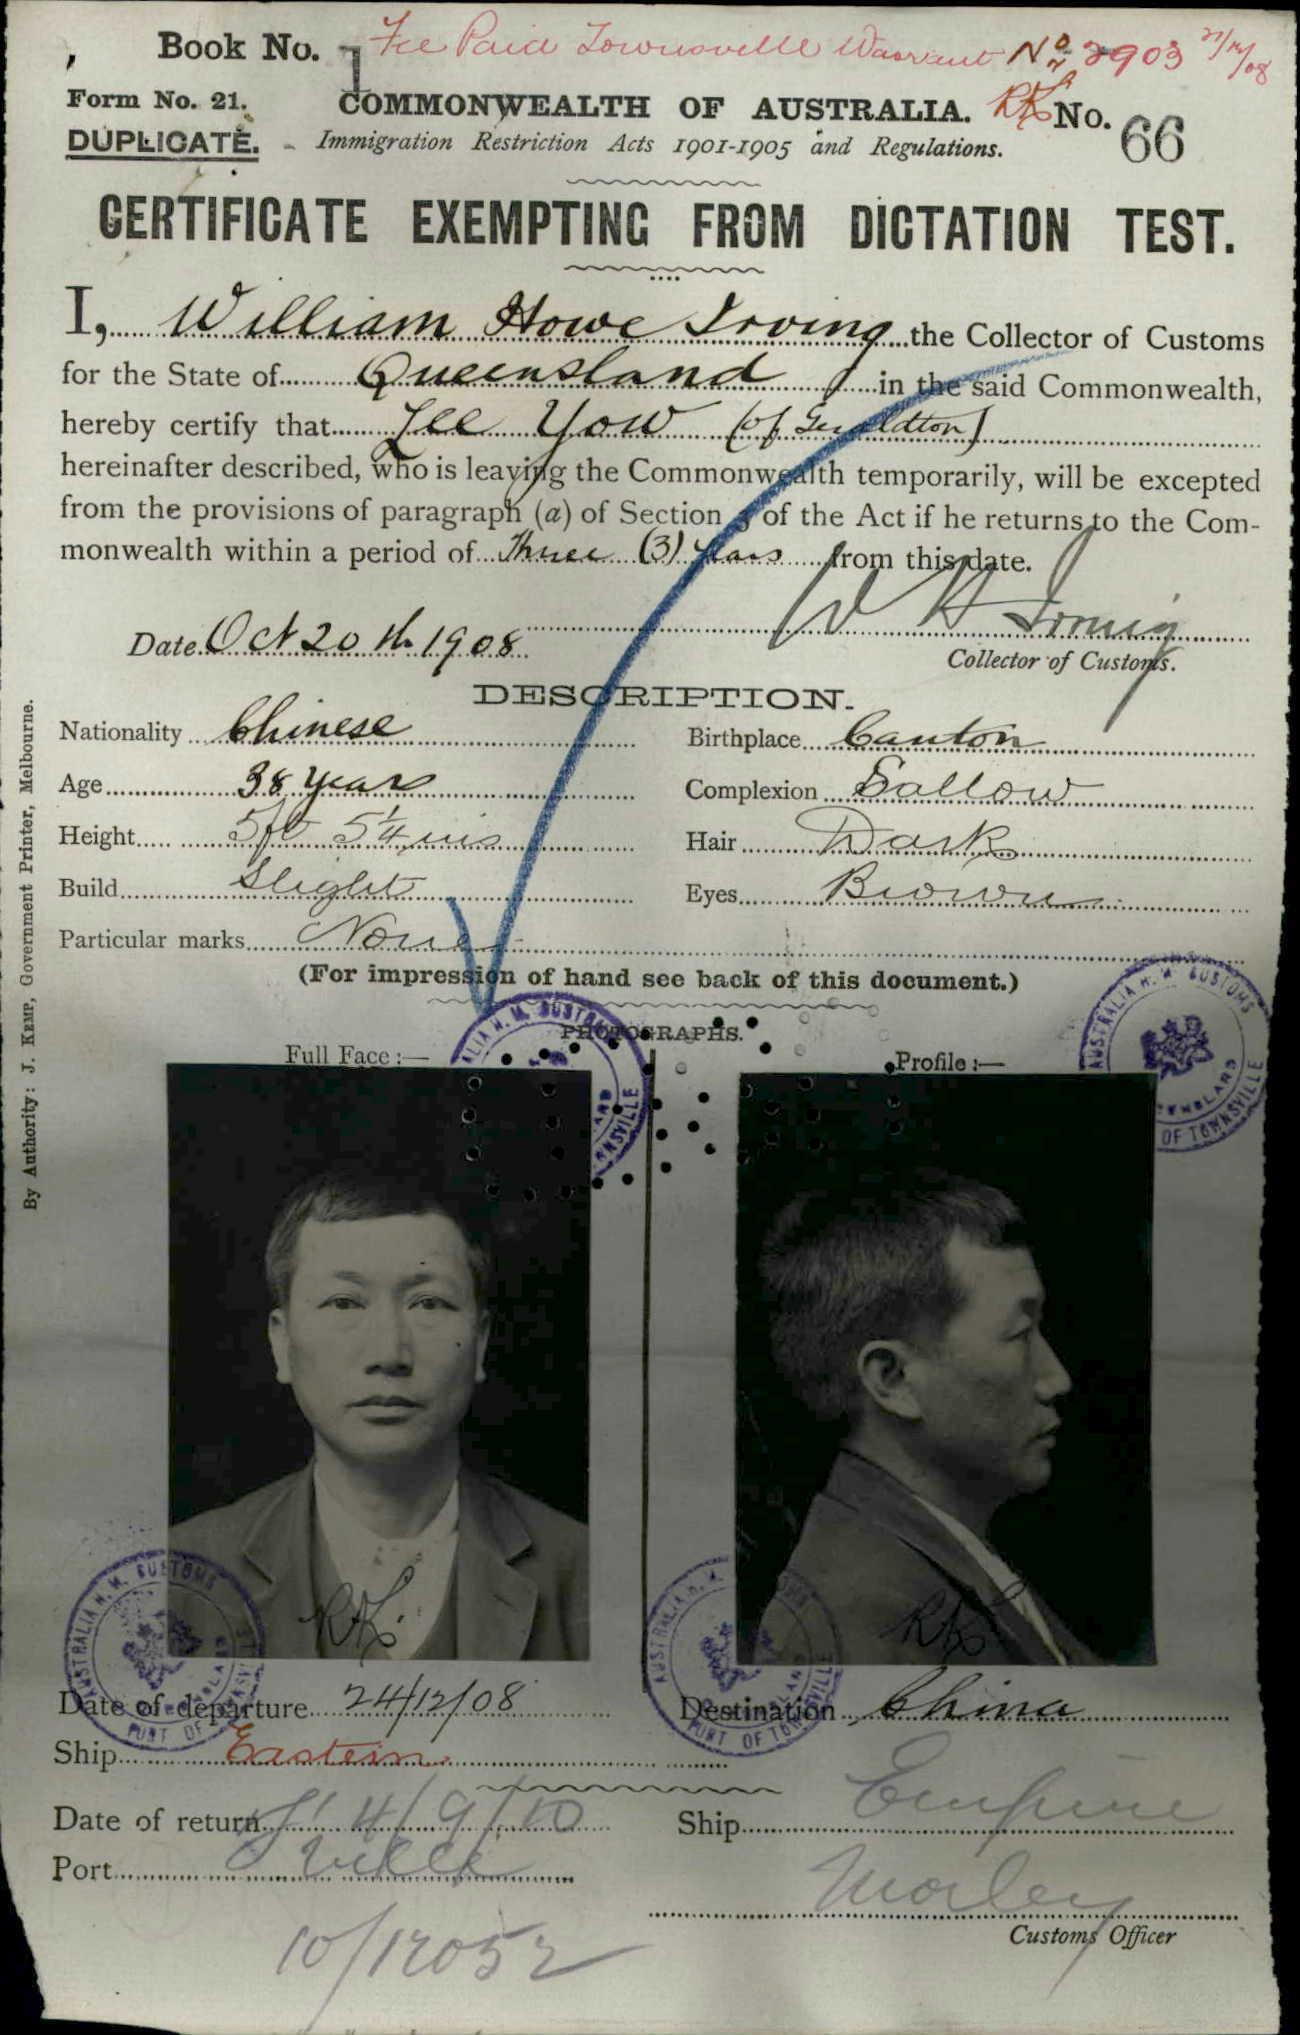 Book No. 1 Fee Paid Townsville Warrant No 2903 21/12/08
Form No. 21. COMMONWEALTH OF AUSTRALIA. RK No. 66
DUPLICATE. Immigration Restriction Acts 1901-1905 and Regulations.
CERTIFICATE EXEMPTING FROM DICTATION TEST.
I, William Howe Irving the Collector of Customs
for the State of Queensland in the said Commonwealth,
hereby certify that Lee Yow (of Geraldton)
hereinafter described, who is leaving the Commonwealth temporarily, will be excepted
from the provisions of paragraph (a) of Section 3 of the Act if he returns to the Com-
monwealth within a period of Three (3) years from this date.
W H Irving
Date Oct 20th 1908
Collector of Customs.
DESCRIPTION.
Nationality Chinese Birthplace Canton
Age 38 years Complexion Sallow
Height 5ft 5¼ins Hair Dark
Build Slight Eyes Brown
Particular marks None
(For impression of hand see back of this document.)
PHOTOGRAPHS.
Full Face :— Profile :—
AUSTRALIA H. M. CUSTOMS QUEENSLAND PORT OF TOWNSVILLE
AUSTRALIA H. M. CUSTOMS QUEENSLAND PORT OF TOWNSVILLE
RK RK
AUSTRALIA H. M. CUSTOMS QUEENSLAND PORT OF TOWNSVILLE
AUSTRALIA H. M. CUSTOMS QUEENSLAND PORT OF TOWNSVILLE
Date of departure 24/12/08 Destination China
Ship Eastern
Date of return 4/9/10 Ship Empire
Port T'ville
Morley
Customs Officer
10/12052
By Authority: J. KEMP, Government Printer, Melbourne.